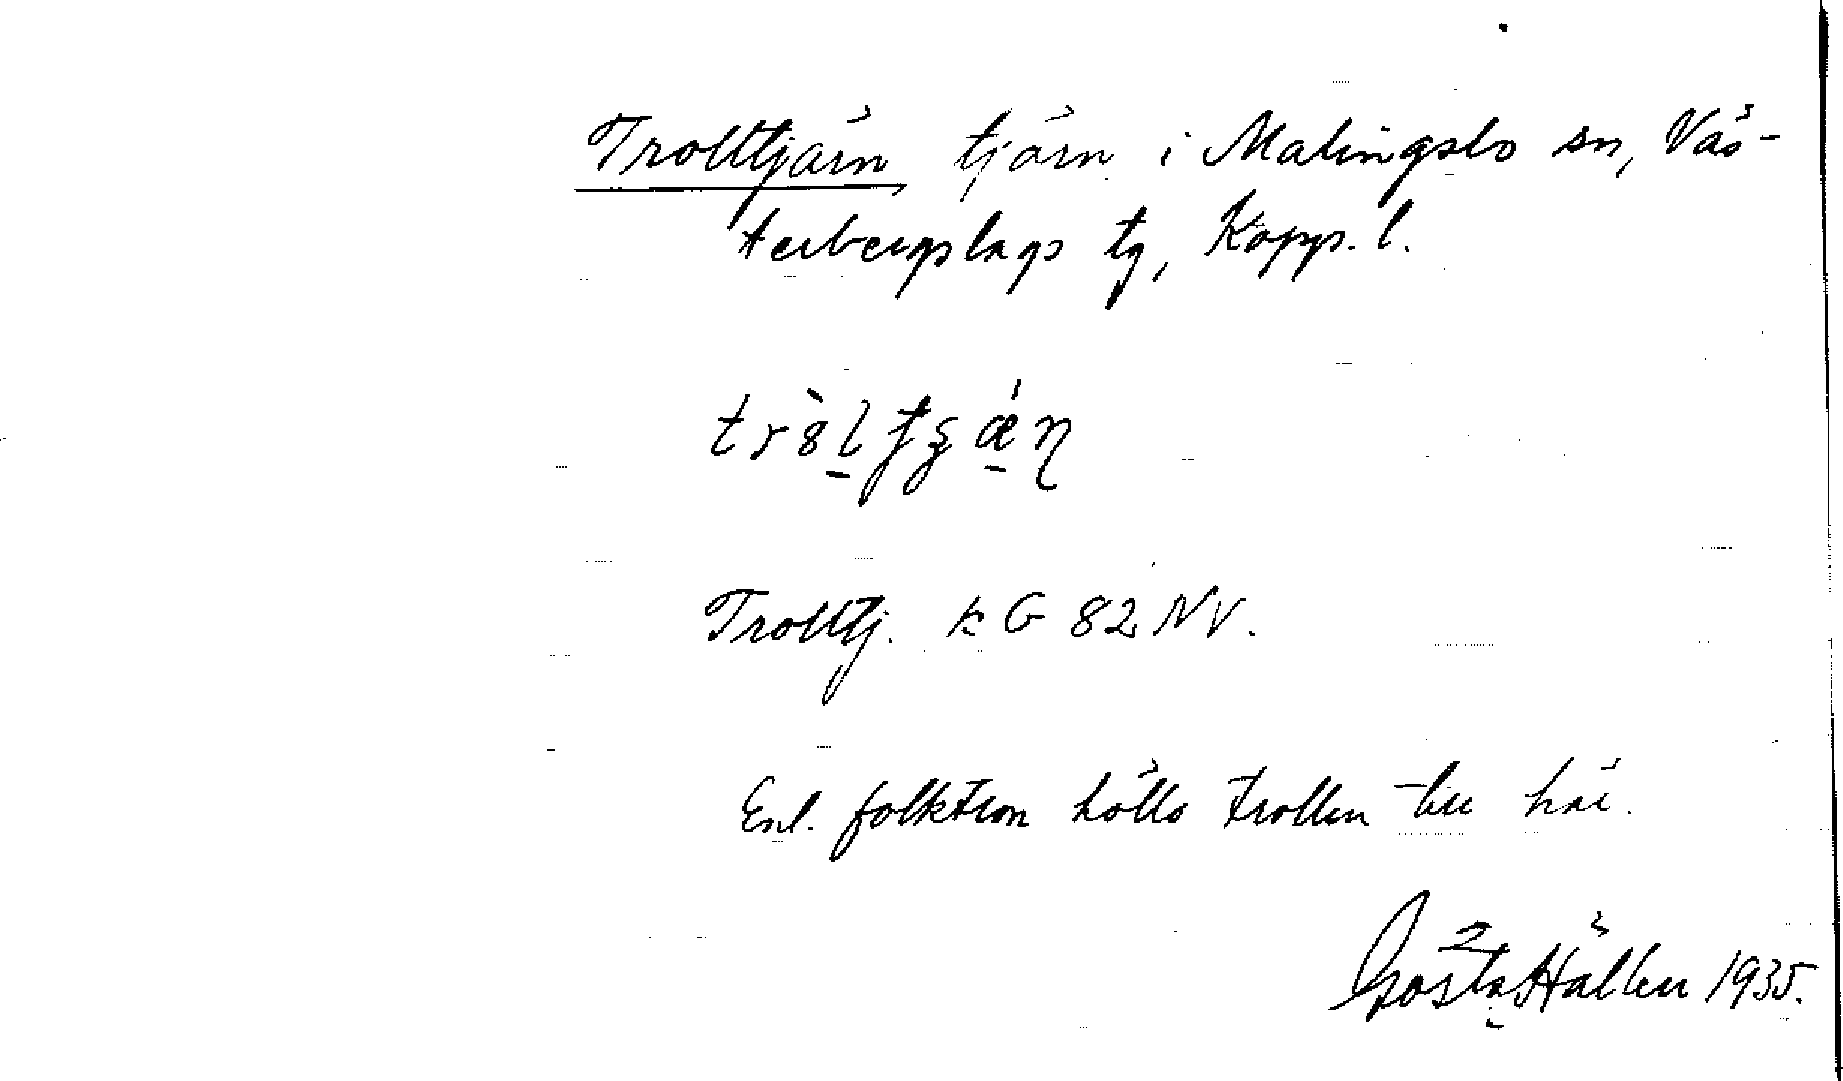 Trolltjärn tjärn i Malingsbo sn, Väs-
terbergslags tg, Kopp. l.
Trolltj. kG 82 NV.
Enl. folktron hölls trollen till här.
Gösta Hällen 1935.